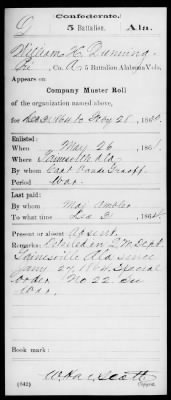 Confederate.
D 5 Battalion. Ala.
William H. Dunning
Co. A, 5 Battalion Alabama Vols.
Appears on
Company Muster Roll
of the organization named above,
for Dec 31 1864 to Feby 28, 186
Enlisted:
When May 26, 1861.
Where Gainesville Ala
By whom Capt
Period War.
Last paid:
By whom Maj Ambler
To what time Dec 31, 1864.
Present or absent Absent.
Remarks: Detailed in Q M Dept
Gainesville Ala since
Jany 27, 1864 Special
order No 22
Book mark:
(642) Copyist.